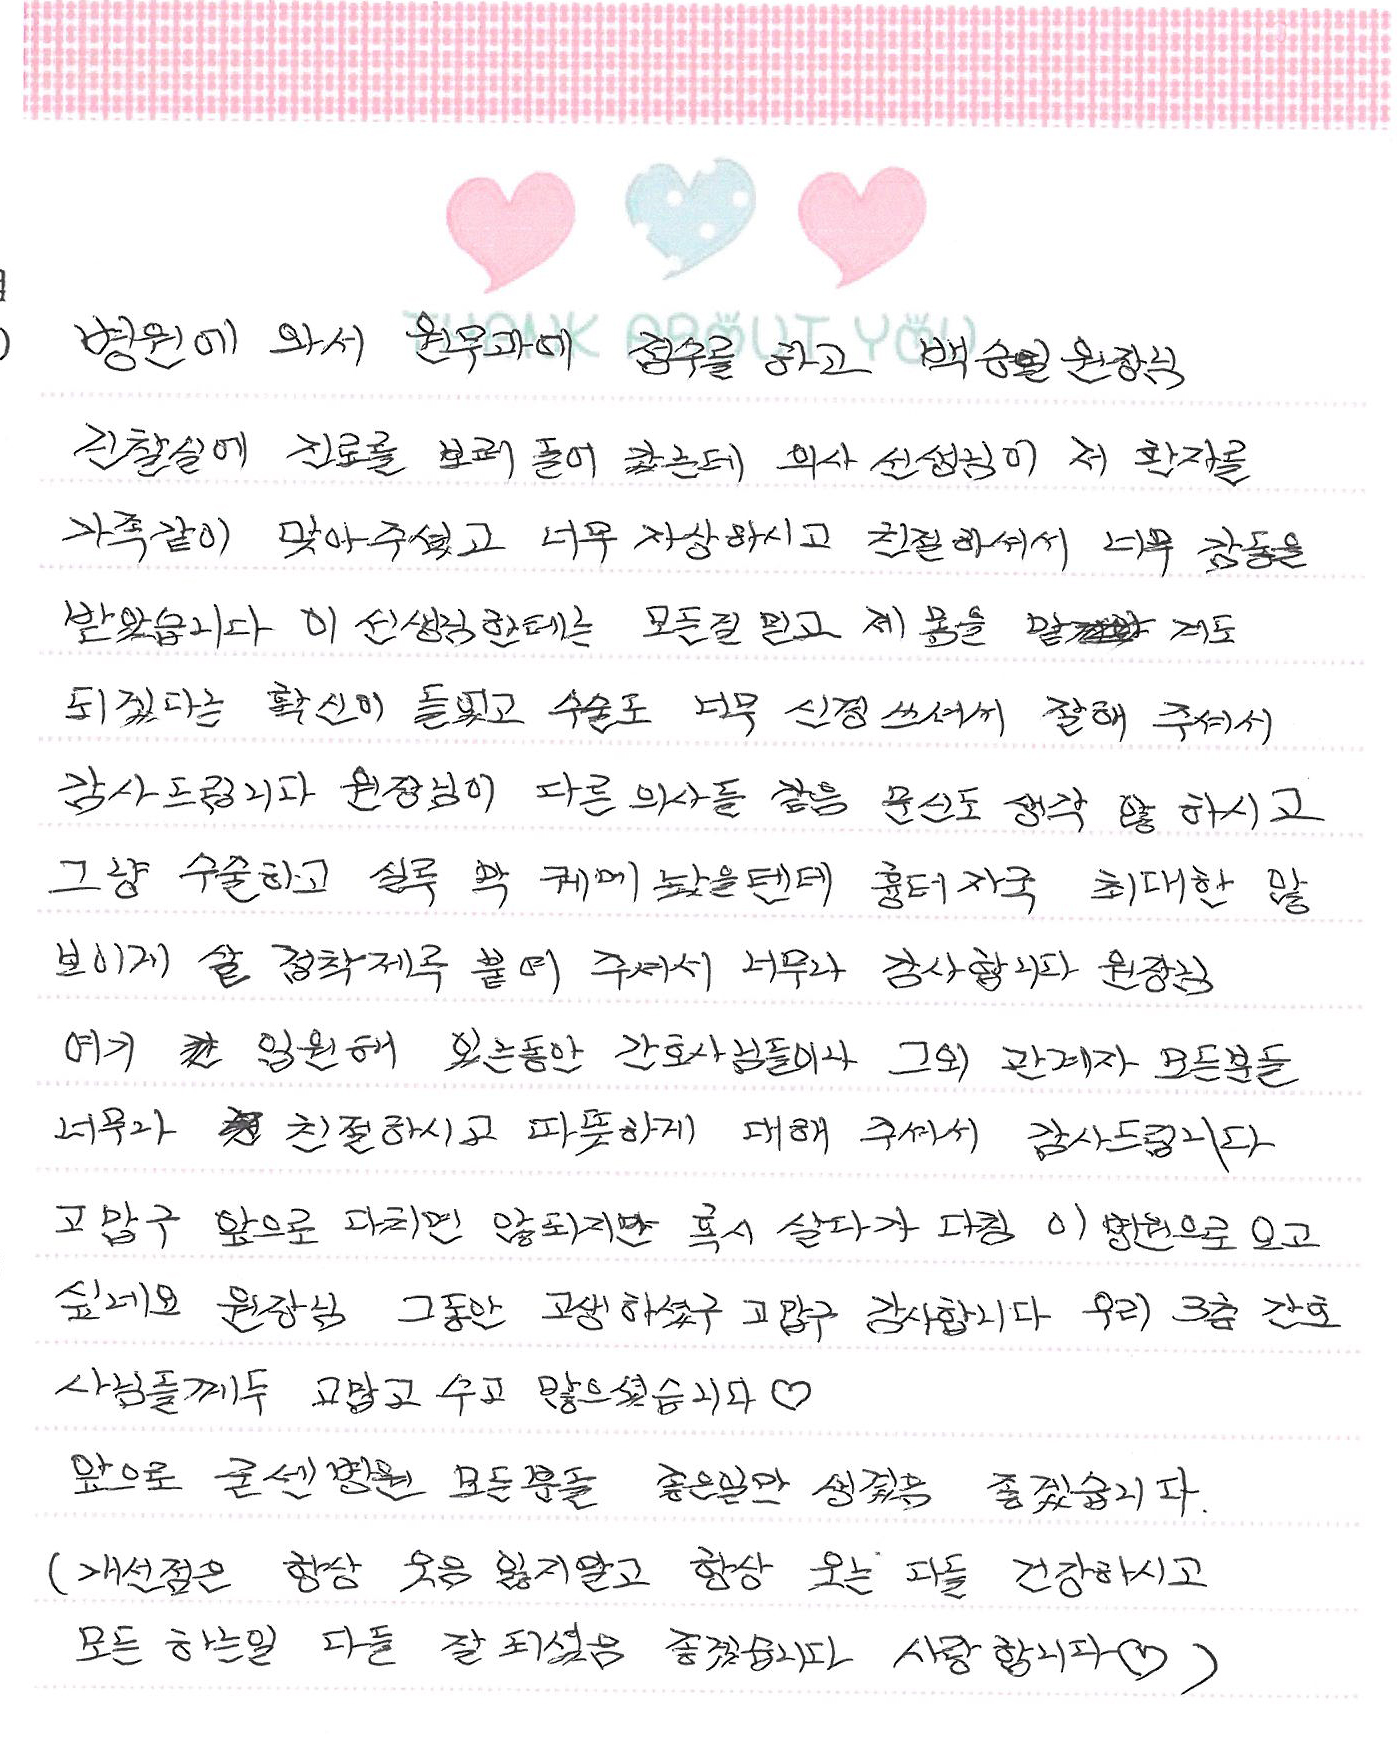 THANK ABOUT YOU
병원에 와서 원무과에 접수를 하고 백승 원장님
진찰실에 진료를 보러 들어 갔는데 의사 선생님이 저 환자를
가족같이 맞아주셨고 너무 자상하시고 친절하셔서 너무 감동을
받았습니다 이 선생님한테는 모든걸 믿고 제 몸을 맡 겨도
되겠다는 확신이 들었고 수술도 너무 신경쓰셔서 잘해 주셔서
감사드립니다 원장님이 다른 의사들 같음 문신도 생각 않 하시고
그냥 수술하고 실루 막 케메 놨을텐데 흉터자국 최대한 않
보이게 살 접착제루 붙여 주셔서 너무나 감사합니다 원장님
여기 입원해 있는동안 간호사님들이나 그외 관계자 모든분들
너무나 친절하시고 따뜻하게 대해 주셔서 감사드립니다
고맙구 앞으로 다치면 않되지만 혹시 살다가 다침 이 병원으로 오고
싶네요 원장님 그동안 고생하셨구 고맙구 감사합니다 우리 3층 간호
사님들께두 고맙고 수고 많으셨습니다♡
앞으로 굳센병원 모든분들 좋은일만 생겼음 좋겠습니다.
(개선점은 항상 웃음 잃지말고 항상 오는 다들 건강하시고
모든 하는일 다들 잘 되셨음 좋겠습니다 사랑합니다♡)